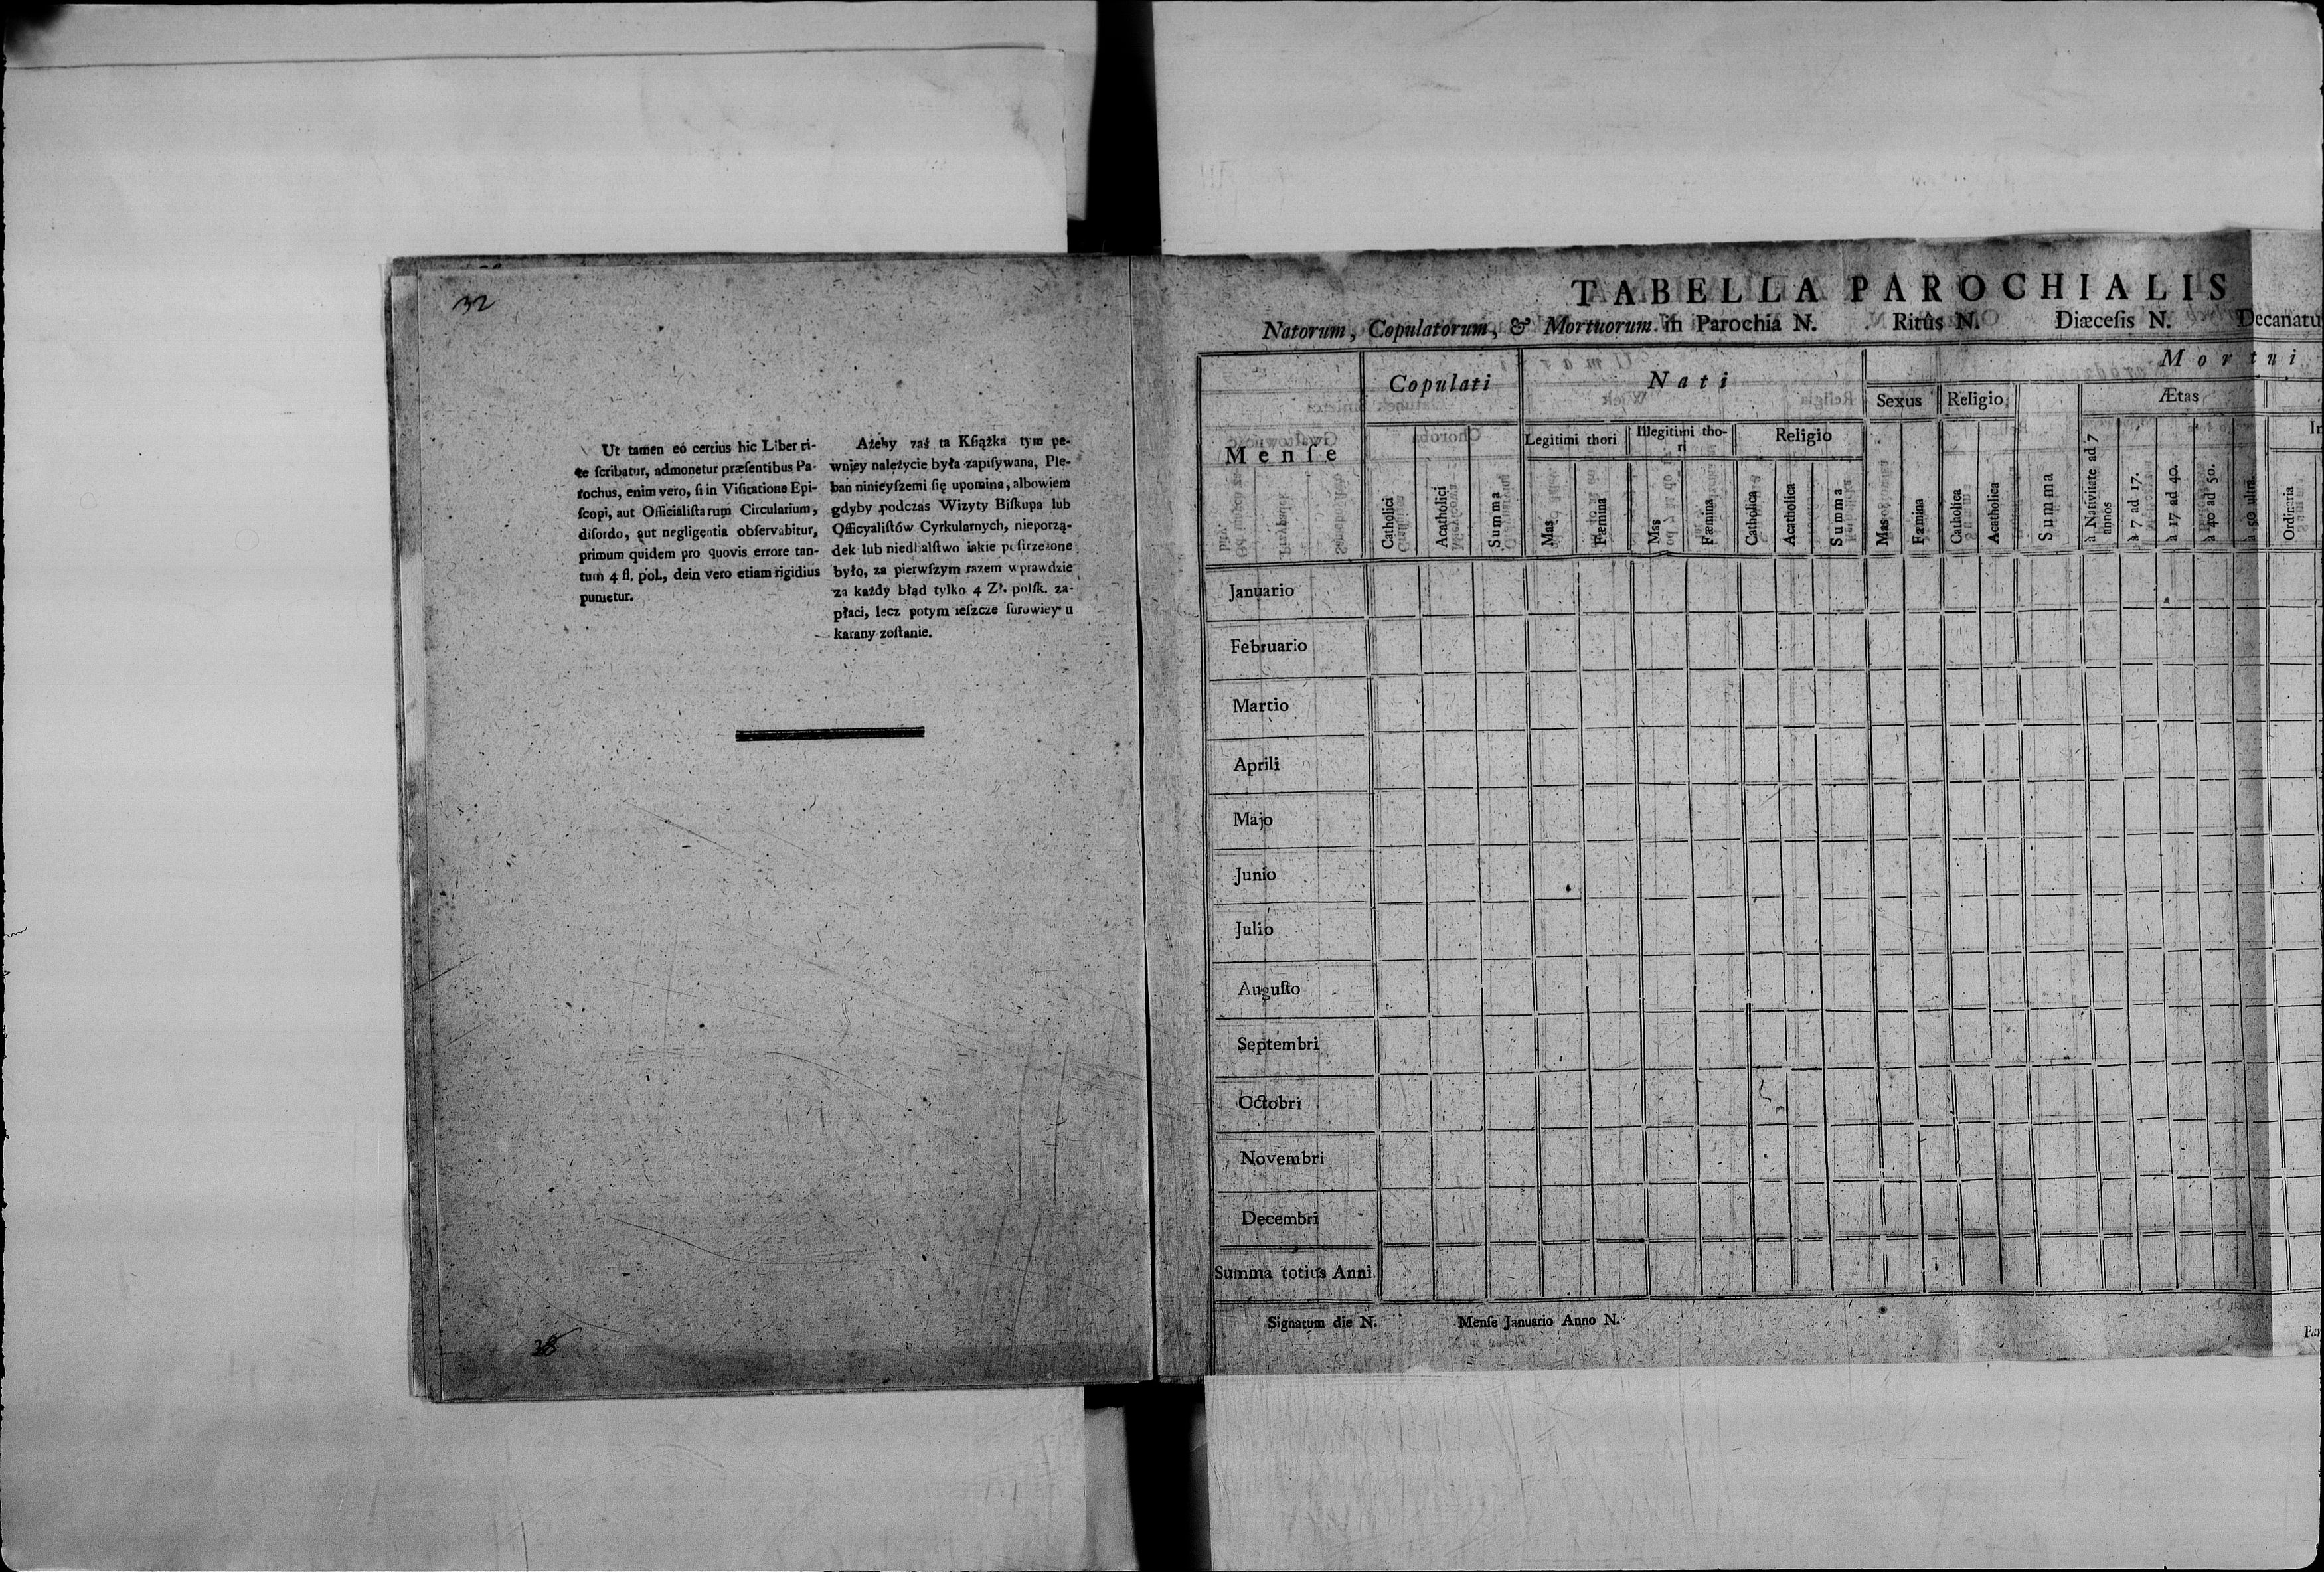 32
Ut tamen eó certius hic Liber ri-
te ſcribatur, admonetur præſentibus Pa-
rochus, enim vero, ſi in Viſitatione Epi-
ſcopi, aut Officialiſtarum Circularium,
diſordo, aut negligentia obſervabitur,
primum quidem pro quovis errore tan-
tum 4 fl. pol., dein vero etiam rigidius
punietur.
Ażeby zaś ta Kſiążka tym pe-
wniey należycie była zapiſywana, Ple-
ban ninieyſzemi ſię upomina, albowiem
gdyby podczas Wizyty Biſkupa lub
Officyaliſtów Cyrkularnych, nieporzą-
dek lub niedbalſtwo iakie poſtrzeżone
było, za pierwſzym razem wprawdzie
za każdy błąd tylko 4 Zł. polſk. za-
płaci, lecz potym ieſzcze ſurowiey u
karany zoſtanie.
38
TABELLA PAROCHIALIS
Natorum, Copulatorum, & Mortuorum in Parochia N. Ritûs N. Diæceſis N. Decanatu
Menſe
Copulati
Nati
Mortui
Legitimi thori
Illegitimi tho-
ri
Religio
Sexus
Religio
Ætas
Catholici
Acatholici
Summa
Mas
Fæmina
Mas
Fæmina
Catholica
Acatholica
Summa
Mas
Fæmina
Catholica
Acatholica
Summa
à Nativitate ad 7
annos
à 7 ad 17.
à 17 ad 40.
à 40 ad 50.
à 50 ultra.
Ordinaria
Januario
Februario
Martio
Aprili
Majo
Junio
Julio
Auguſto
Septembri
Octobri
Novembri
Decembri
Summa totius Anni
Signatum die N. Menſe Januario Anno N.